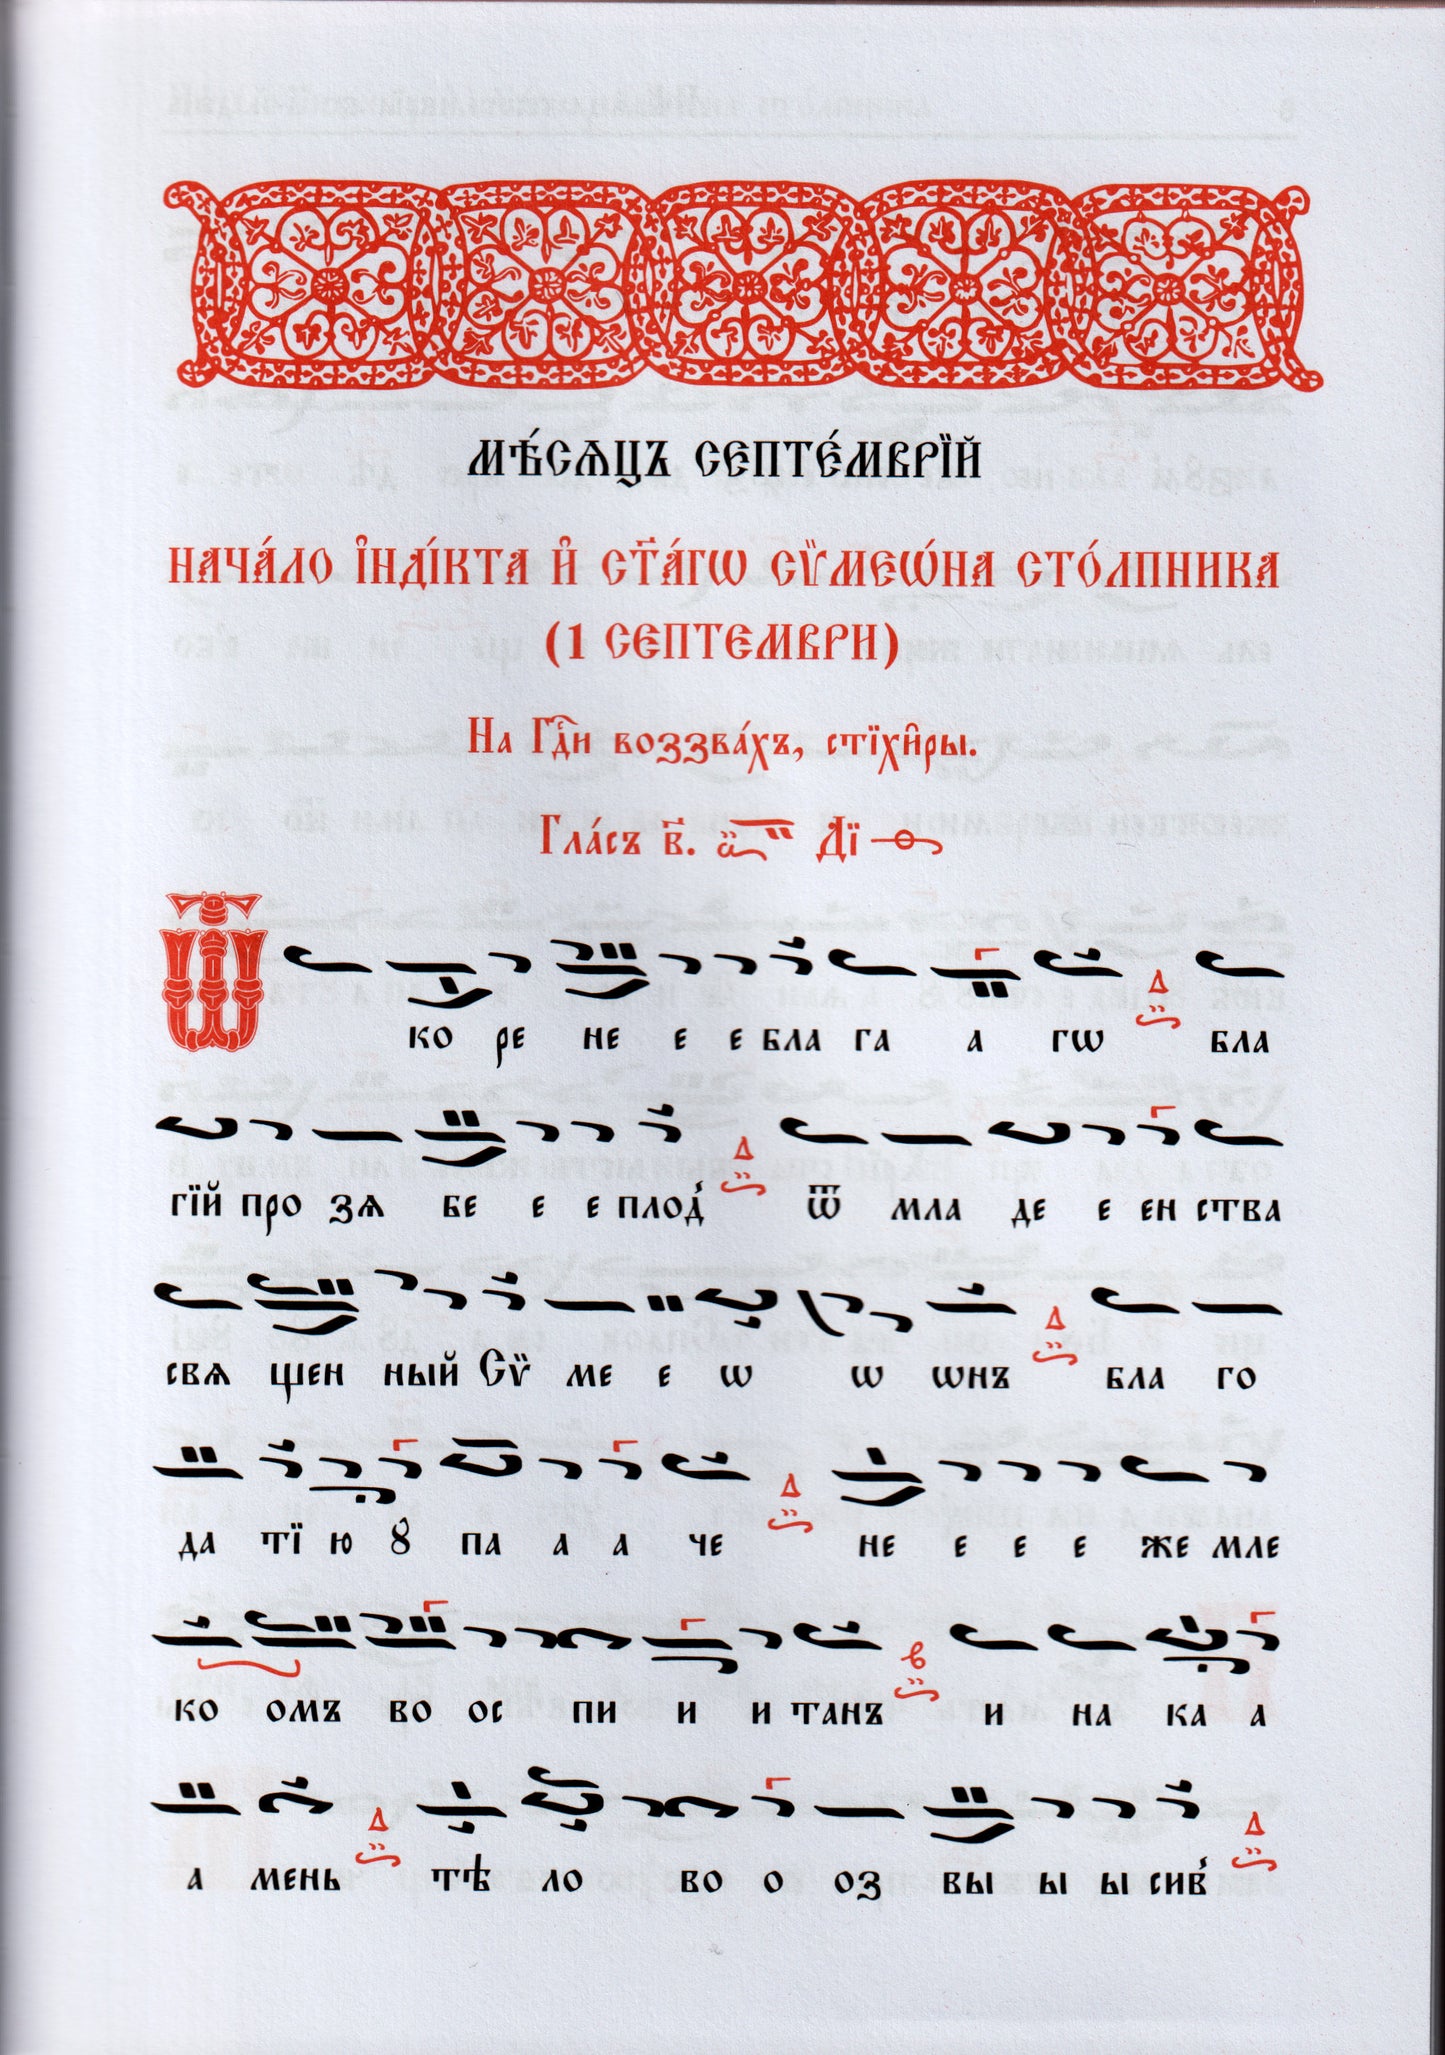 МѢ́СѦЦЪ СЕПТЕ́МВРЇЙ
НАЧА́ЛО І҆НДІ́КТА И҆ СТ҃А́ГѠ СѴ̈МЕѠ́НА СТО́ЛПНИКА
(1 СЕПТЕМВРИ)
На Гдⷭ҇и воззва́хъ, стїхи̑ры.
Гла́съ в҃. Дї
Ѿ
ко ре не е е бла га а гѡ Д бла
гїй про зѧ бе е е плод̾ Д ѿ мла де е ен ства
свѧ щен ный Сѵ̈ ме е ѡ ѡ ѡнъ Д бла го
да тї ю ꙋ̂ па а а че Д не е е е же мле
ко омъ во ос пи и и танъ в и на ка а
а мень Д тѣ ло во о оз вы ы ы сив̾ Д